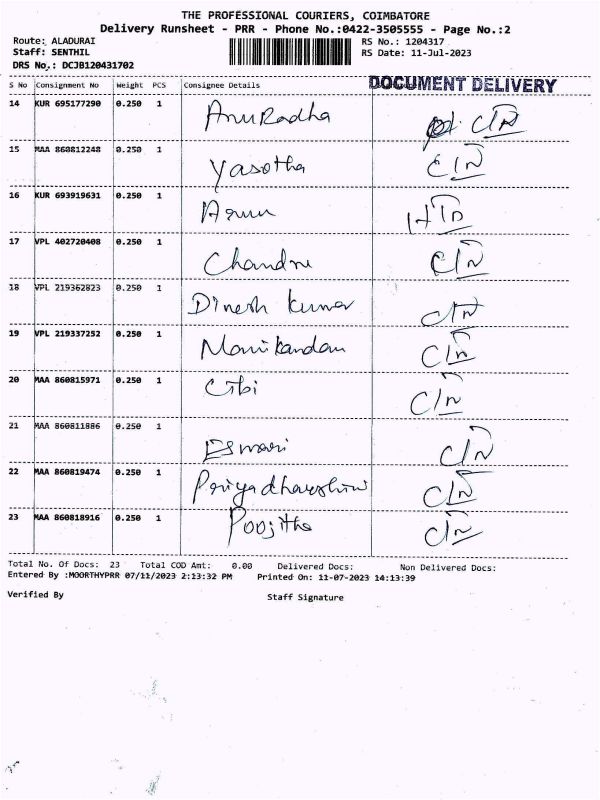 THE PROFESSIONAL COURIERS, COIMBATORE
Delivery Runsheet - PRR - Phone No.:0422-3505555 - Page No.:2
Route: ALADURAI RS No.: 1204317
Staff: SENTHIL RS Date: 11-Jul-2023
DRS No,: DCJB120431702
DOCUMENT DELIVERY
S No Consignment No Weight PCS Consignee Details
14 KUR 695177290 0.250 1 Anuradha
15 MAA 860812248 0.250 1 Yasotha
16 KUR 693919631 0.250 1 Arun
17 VPL 402720408 0.250 1 Chandru
18 VPL 219362823 0.250 1 Dinesh Kumar
19 VPL 219337252 0.250 1 Manikandan
20 MAA 860815971 0.250 1 Cibi
21 MAA 860811886 0.250 1 Eswari
22 MAA 860819474 0.250 1 Priyadharshini
23 MAA 860818916 0.250 1 Poojitha
Total No. Of Docs: 23 Total COD Amt: 0.00 Delivered Docs: Non Delivered Docs:
Entered By :MOORTHYPRR 07/11/2023 2:13:32 PM Printed On: 11-07-2023 14:13:39
Verified By Staff Signature